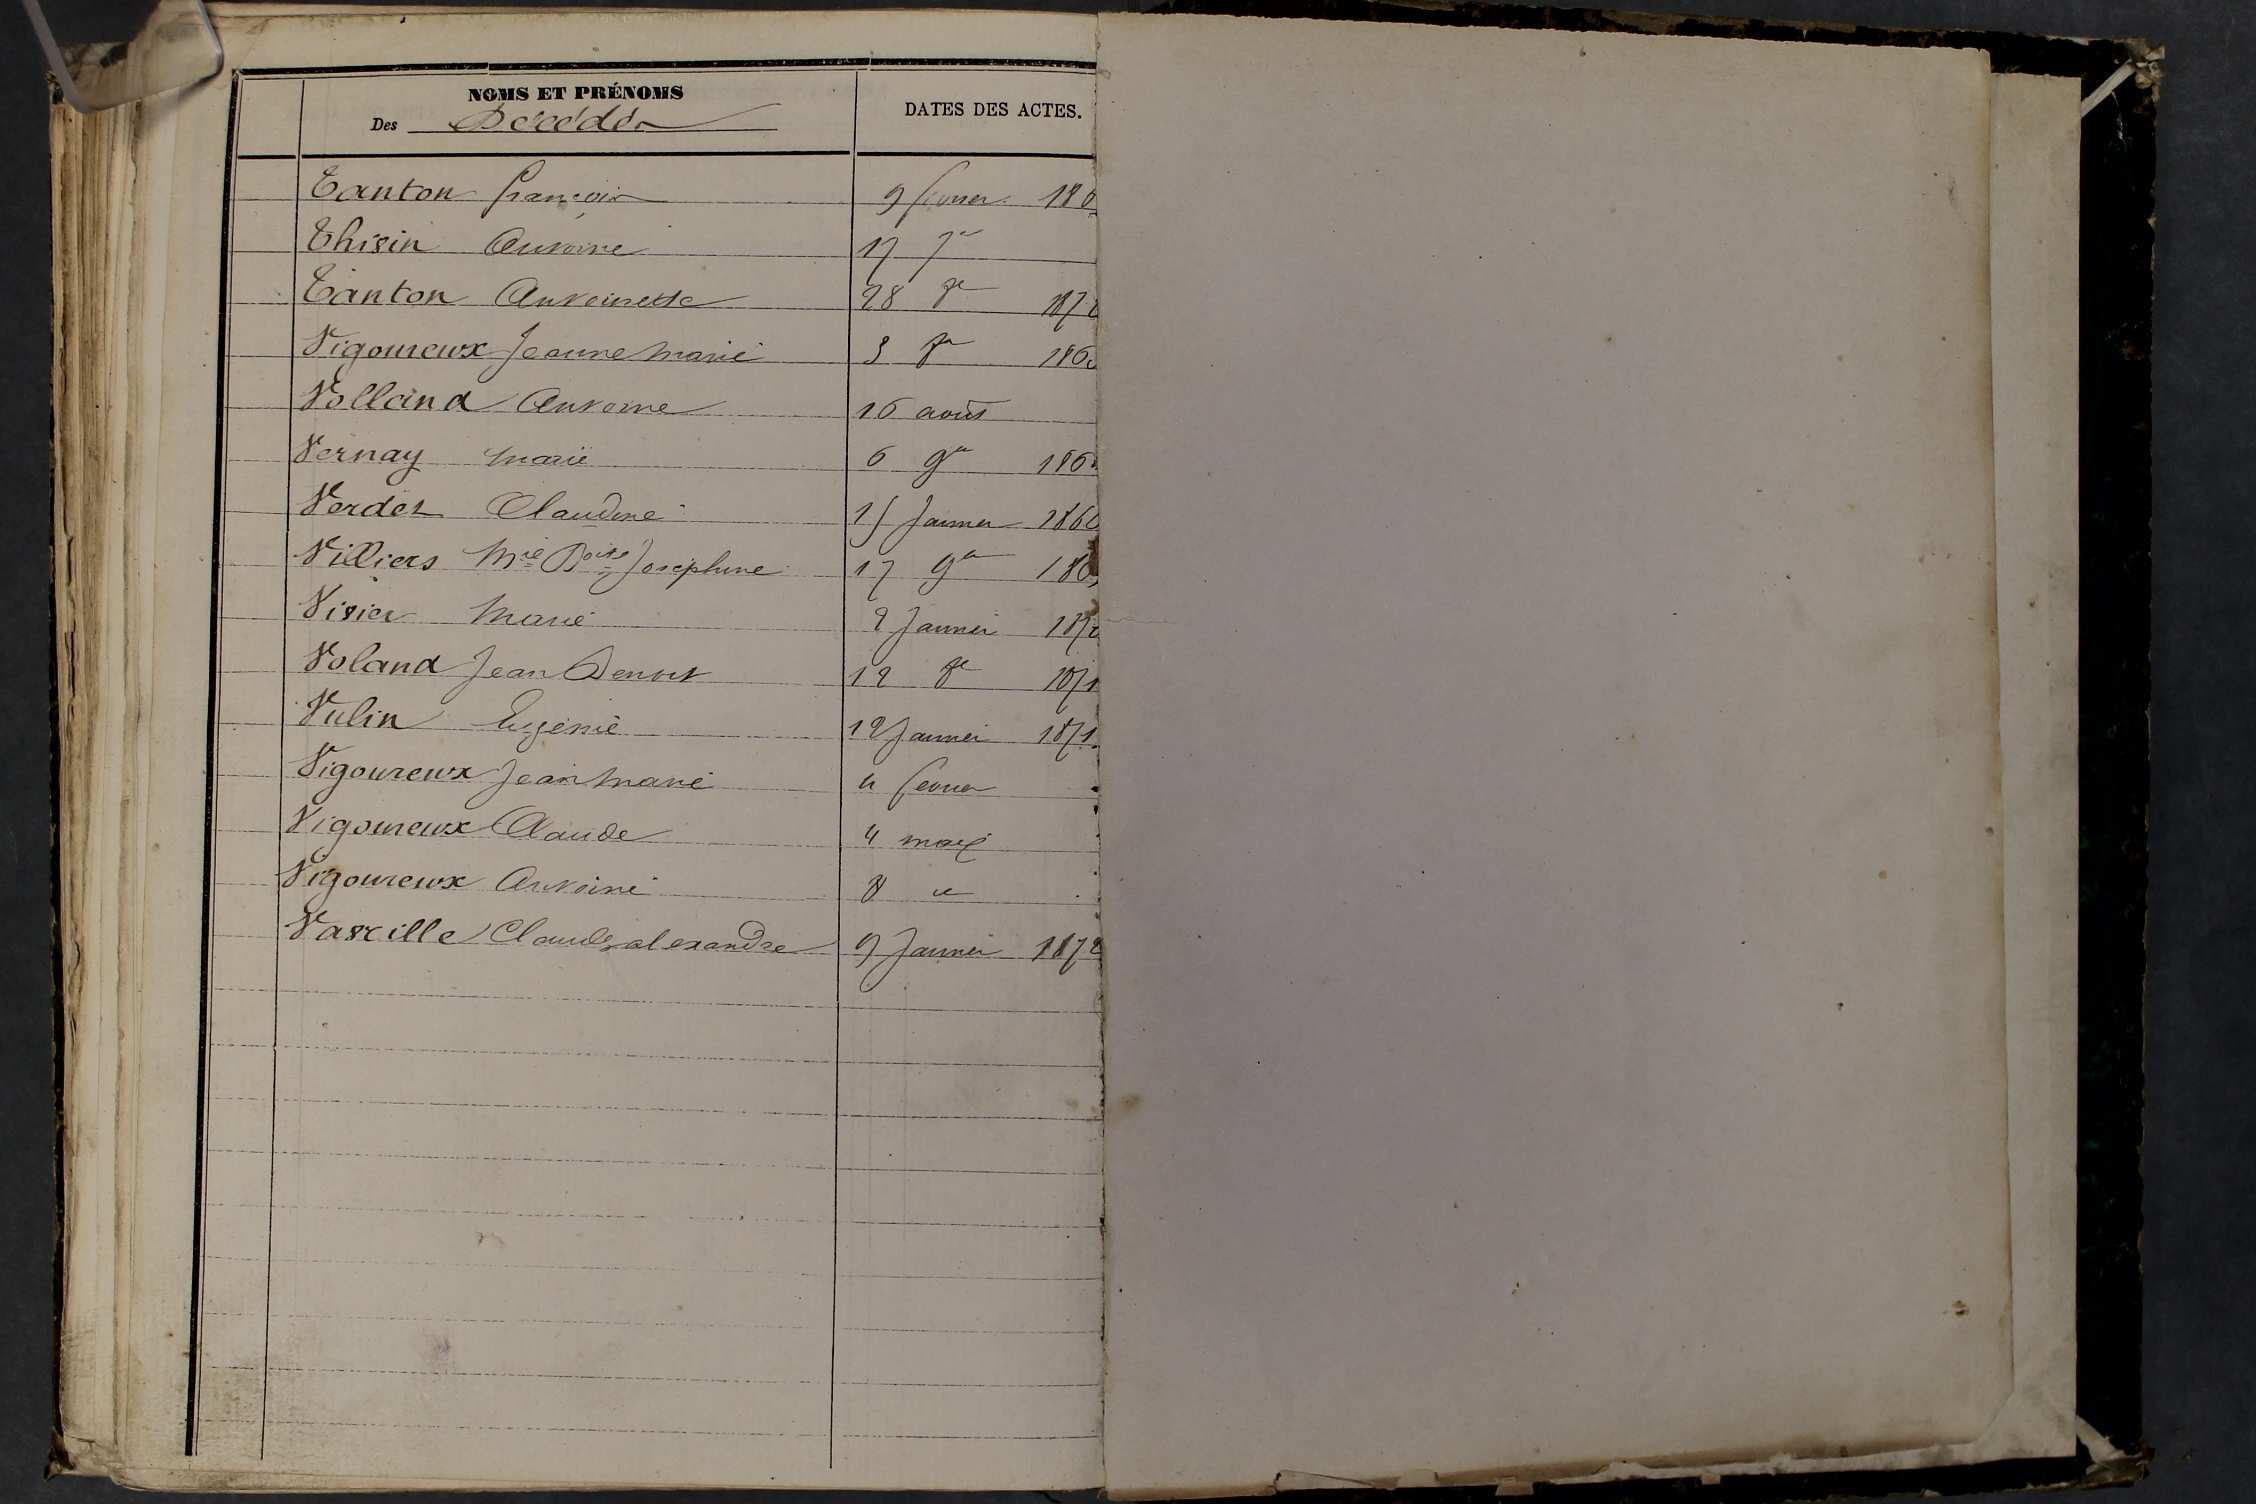 NOMS ET PRÉNOMS
Des Décédés
DATES DES ACTES.
Tanton françois 9 février 186
Thisin Antoine 17 7re
Tanton Antoinette 28 1870
Vigoureux Jeanne marie 3 186
Volland Antoine 16 août
Vernay marie 6 9re 186
Verdet Claudine 15 Janvier 186
Villiers Mie Boite Josephine 17 9re 186
Visier Marie 2 Janvier 1870
Voland Jean Benoit 12 1871
Vulin Eugénie 12 Janvier 1871
Vigoureux Jean marie 4 fevrier
Vigoureux Claude 4 mars
Vigoureux Antoine 8 "
Vascille Claude alexandre 9 Janvier 1872